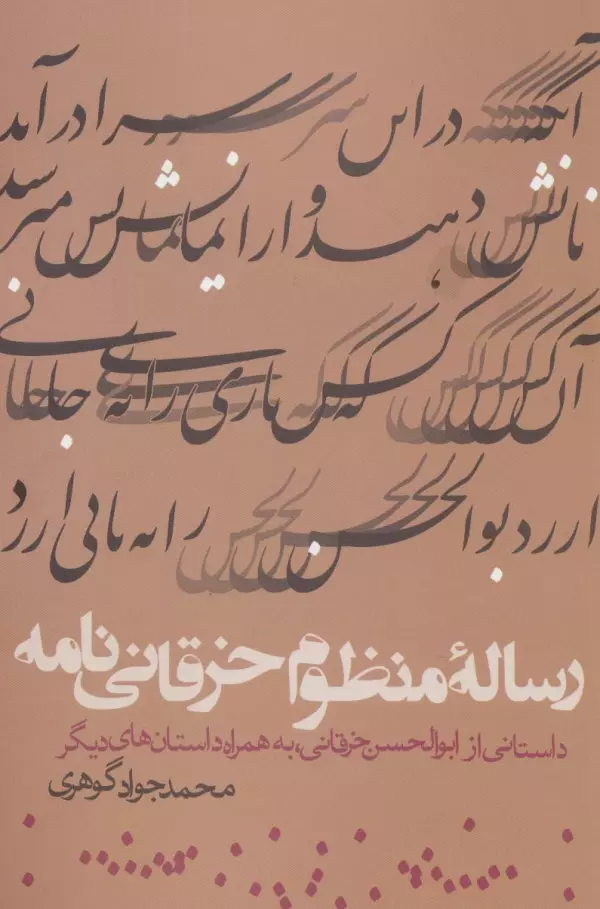 آنکس که در این سرا درآید
نانش دهید و از ایمانش مپرسید
آن کس که بر باری را به جانی
ارزد بوالحسن را به نانی ارزد
رسالهٔ منظوم خرقانی‌نامه
داستانی از ابوالحسن خرقانی، به همراه داستان‌های دیگر
محمدجواد گوهری